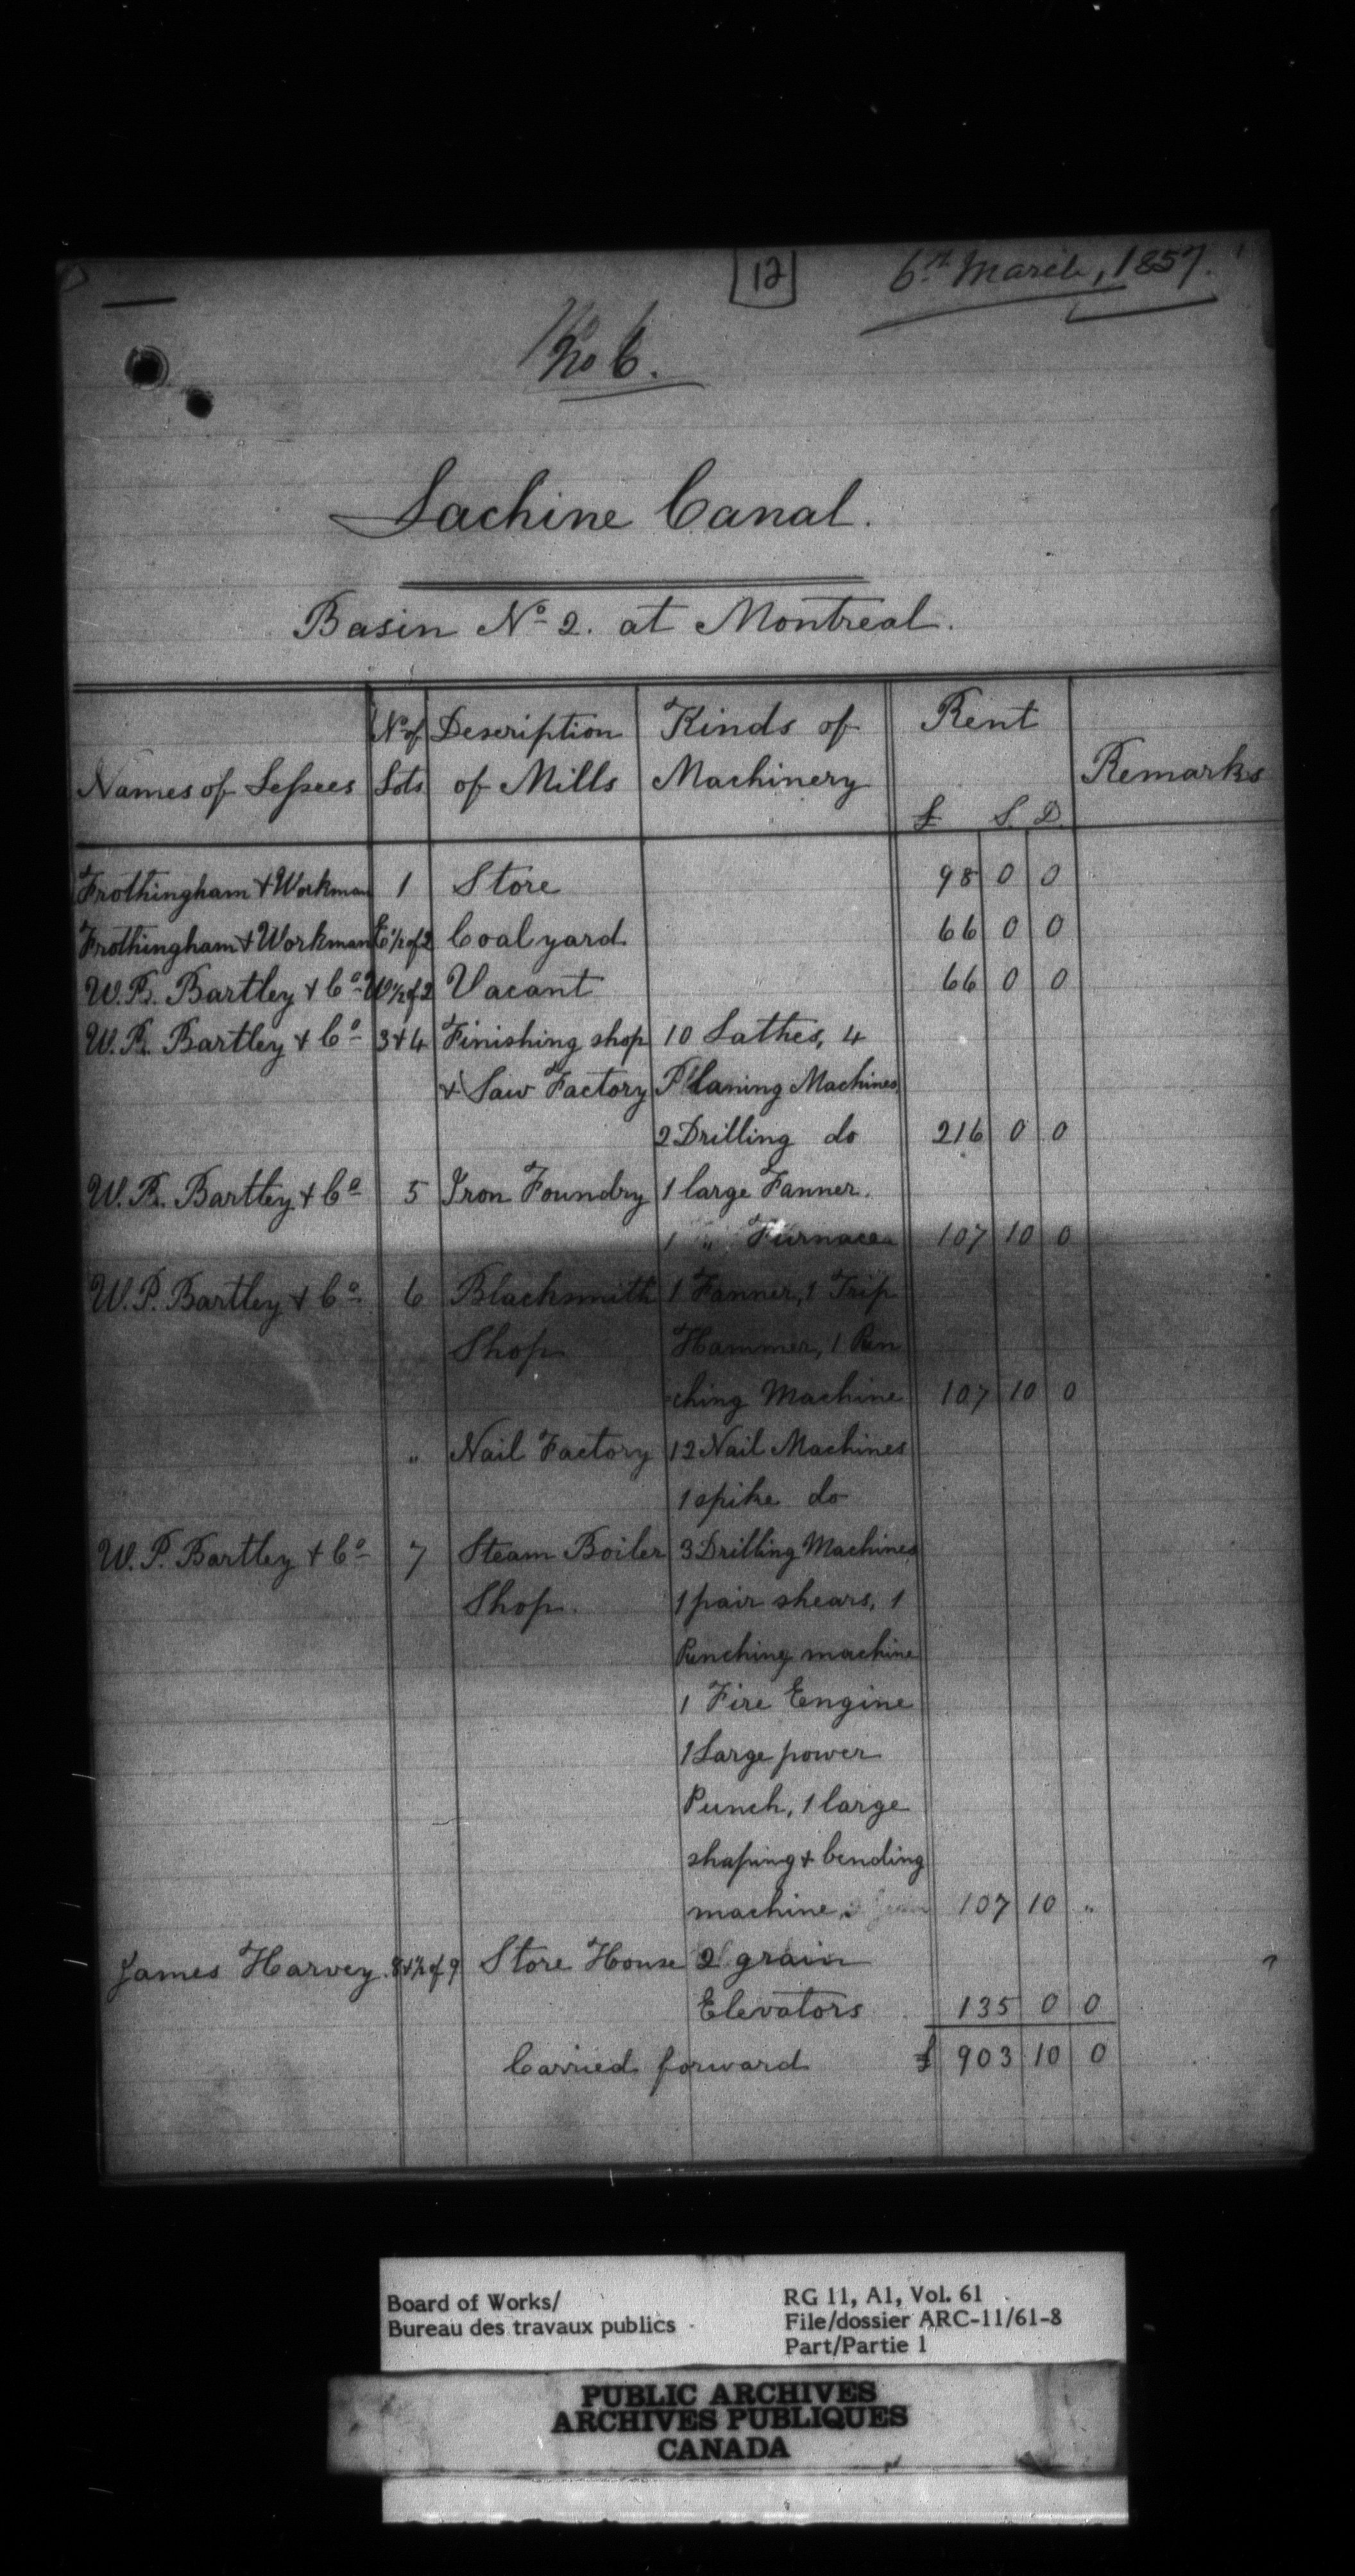 12
6th March, 1857.
No 6.
Lachine Canal.
Basin No 2. at Montreal.
Names of Lessees | No of Lots | Description of Mills | Kinds of Machinery | Rent £ S. D. | Remarks
Frothingham & Workman | 1 | Store | | 98 | 0 | 0
Frothingham & Workman | E 1/2 of 2 | Coal yard | | 66 | 0 | 0
W. P. Bartley & Co | W 1/2 of 2 | Vacant | | 66 | 0 | 0
W. P. Bartley & Co | 3 & 4 | Finishing shop | 10 Lathes, 4
& Saw Factory | Planing Machines,
2 Drilling do | 216 | 0 | 0
W. P. Bartley & Co | 5 | Iron Foundry | 1 large Fanner.
1 " Furnace | 107 | 10 | 0
W. P. Bartley & Co | 6 | Blacksmith | 1 Fanner, 1 Trip
Shop | Hammer, 1 Pun
-ching Machine | 107 | 10 | 0
" | Nail Factory | 12 Nail Machines
1 spike do
W. P. Bartley & Co | 7 | Steam Boiler | 3 Drilling Machines
Shop. | 1 pair shears, 1
Punching machine
1 Fire Engine
1 Large power
Punch, 1 large
shaping & bending
machine. | 107 | 10 | "
James Harvey. | 8 & 1/2 of 9 | Store House | 2 grain
Elevators | 135 | 0 | 0
Carried forward £ | 903 | 10 | 0
Board of Works/
Bureau des travaux publics
RG 11, A1, Vol. 61
File/dossier ARC-11/61-8
Part/Partie 1
PUBLIC ARCHIVES
ARCHIVES PUBLIQUES
CANADA